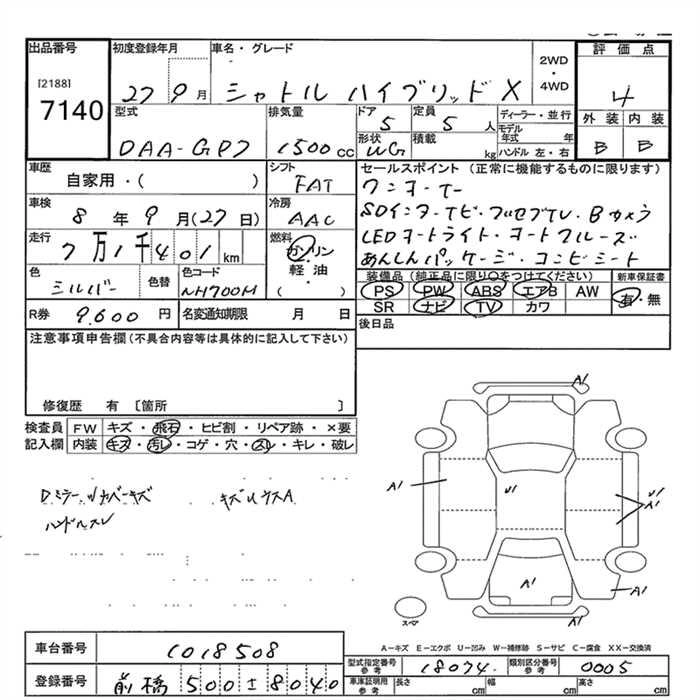 出品番号 初度登録年月 車名・グレード 2WD・4WD 評価点
[2188]
7140 27 9月 シャトル ハイブリッド X 4
型式 排気量 ドア 定員 ディーラー・並行 外装 内装
DAA-GP7 1500cc 5 5人 モデル年式 年 B B
形状 WG 積載 kg ハンドル 左・右
車歴 シフト セールスポイント(正常に機能するものに限ります)
自家用・( ) FAT ワンオーナー
車検 冷房 SDインターナビ・フルセグTV・Bカメラ
8年9月(27日) AAC LEDオートライト・オートクルーズ
走行 燃料 あんしんパッケージ・コンビシート
7万1千401km ガソリン 軽油・( )
色 色替 色コード 装備品(純正品に限り○をつけてください) 新車保証書
シルバー NH700M PS PW ABS エアB AW 有・無
SR ナビ TV カワ
R券 9,600円 名変通知期限 月 日 後日品
注意事項申告欄(不具合内容等は具体的に記入して下さい)
修復歴 有 [箇所 ]
検査員 FW キズ・飛石・ヒビ割・リペア跡・×要
記入欄 内装 キズ・汚レ・コゲ・穴・スレ・キレ・破レ
Dミラーカバーキズ キズUウスA
ハンドルスレ
A1
A1 U1 U1
A1
A1 A1
A1
スペア
A-キズ E-エクボ U-凹み W-補修跡 S-サビ C-腐食 XX-交換済
車台番号 1018508
型式指定番号 参考 18074 類別区分番号 参考 0005
登録番号 前橋 500 ± 8040
車庫証明用 参考 長さ cm 幅 cm 高さ cm